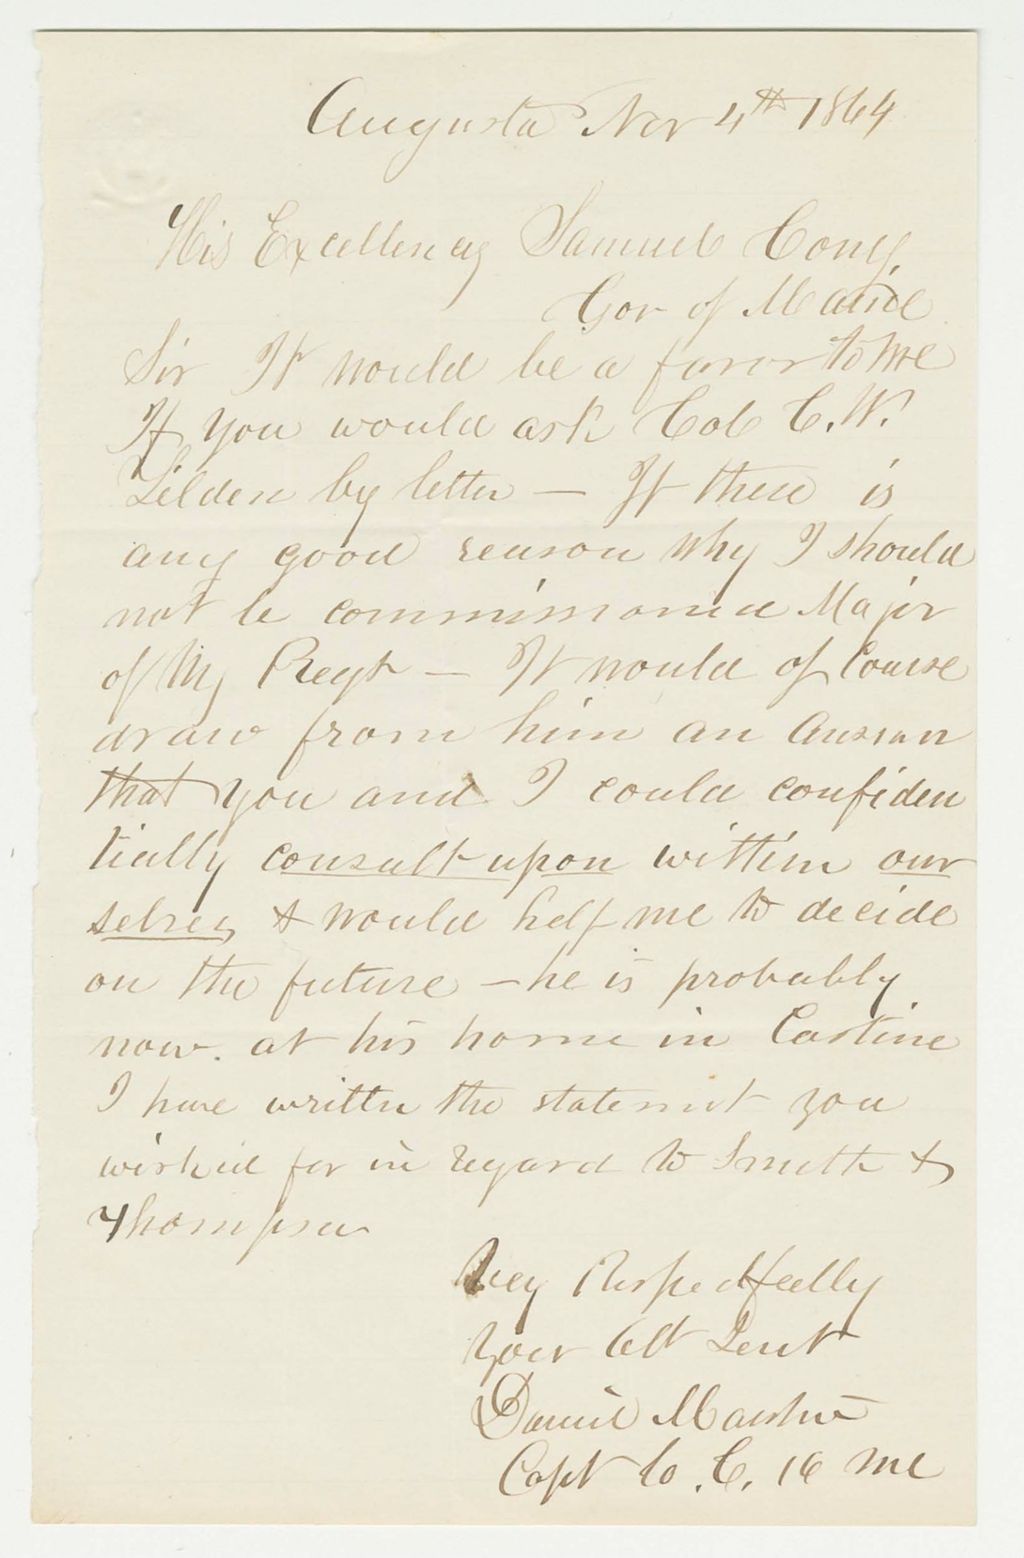 Augusta Nov 4th 1864
His Excellency Samuel Cony
Gov of Maine
Sir It would be a favor to me
If you would ask Col C. W.
Tilden by letter — If there is
any good reason why I should
not be commissioned Major
of My Regt — It would of Course
draw from him an Answer
that you and I could confiden
tially consult upon within our
selves, & would help me to decide
on the future — he is probably
now. at his home in Castine
I have written the statement you
wished for in regard to Smith &
Thompson
Very Respectfully
Your Obt Servt
Daniel Marston
Capt Co. C. 16 Me